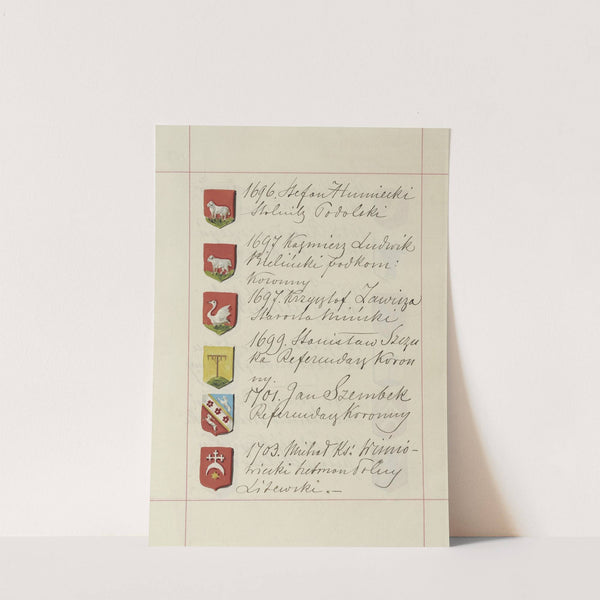 1696. Stefan Humiecki
Stolnik Podolski
1697 Kazmierz Ludwik
Bieliński podkom:
Koronny
1697. Krzysztof Zawisza
Starosta Miński
1699. Stanisław Szczu
ka Referendarz Koron
ny.
1701. Jan Szembek
Referendarz Koronny
1703. Michał Ks: Wiśnio-
wiecki hetman Polny
Litewski. —